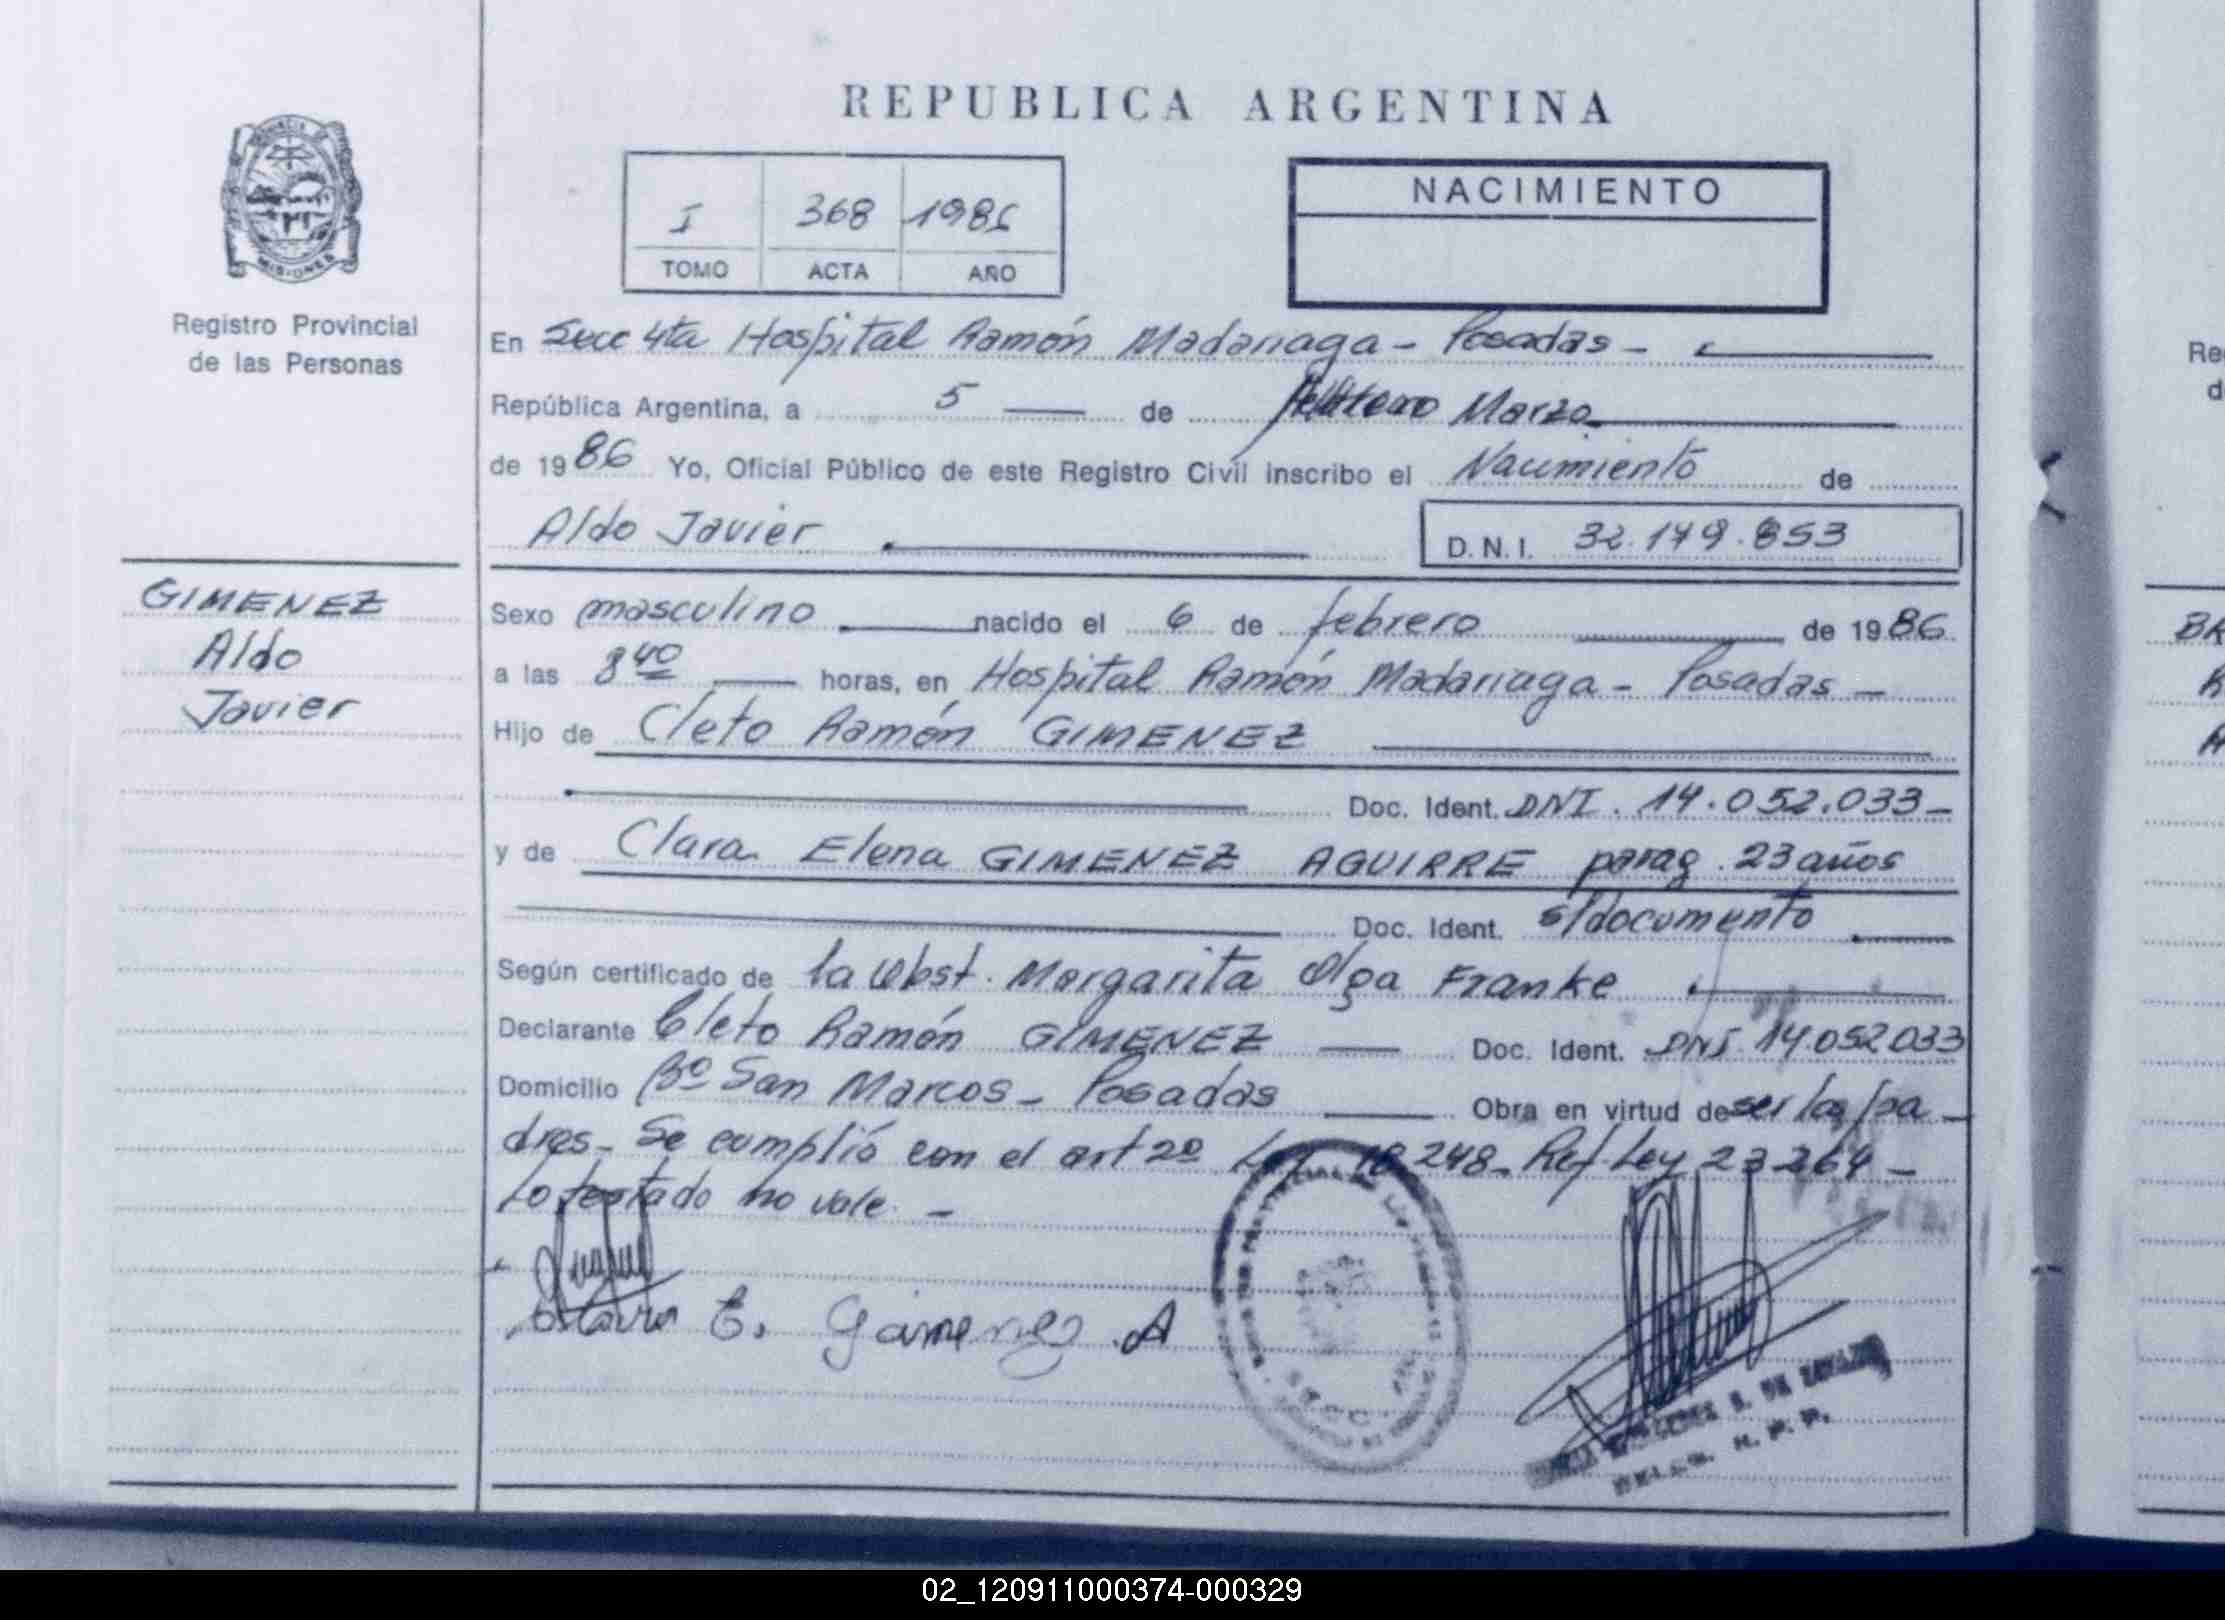 REPUBLICA ARGENTINA
PROVINCIA DE
MISIONES
Registro Provincial
de las Personas
I 368 1986
TOMO ACTA AÑO
NACIMIENTO
En Secc 4ta Hospital Ramón Madariaga - Posadas -
República Argentina, a 5 de Marzo
de 1986 Yo, Oficial Público de este Registro Civil inscribo el Nacimiento de
Aldo Javier D.N.I. 32.179.853
GIMENEZ
Aldo
Javier
Sexo masculino nacido el 6 de febrero de 1986
a las 8 40 horas, en Hospital Ramón Madariaga - Posadas -
Hijo de Cleto Ramón GIMENEZ
Doc. Ident. DNI. 14.052.033-
y de Clara Elena GIMENEZ AGUIRRE parag. 23 años
Doc. Ident. s/documento
Según certificado de la Obst. Margarita Olga Franke
Declarante Cleto Ramón GIMENEZ Doc. Ident. DNI 14.052.033
Domicilio Bº San Marcos - Posadas Obra en virtud de ser los pa-
dres - Se cumplió con el art 2º Ley 18.248 - Ref. Ley 23.264 -
Lo testado no vale. -
E. Gimenez A
H. P. P.
02_120911000374-000329